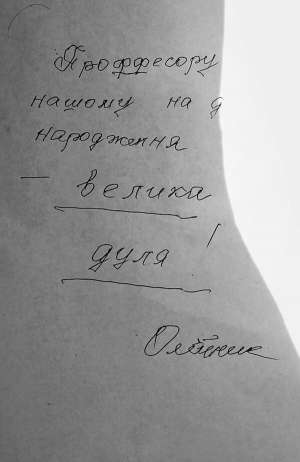 Проффесору
нашому на д
народження
— велика
дуля !